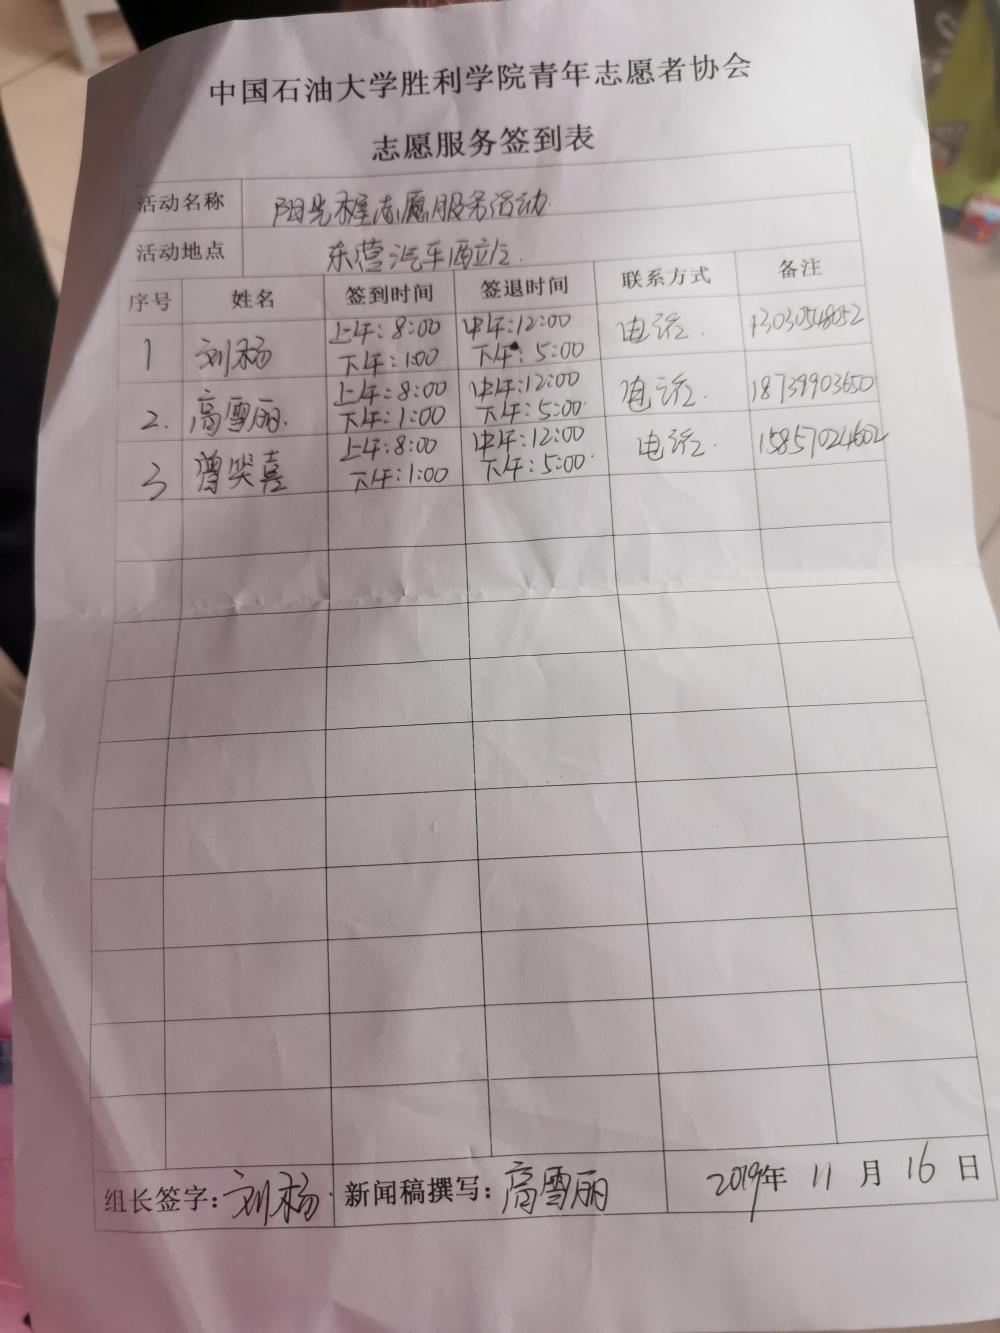 中国石油大学胜利学院青年志愿者协会
志愿服务签到表
活动名称 阳光程志愿服务活动
活动地点 东营汽车西站
序号 姓名 签到时间 签退时间 联系方式 备注
1 刘杨 上午:8:00 下午:1:00 中午:12:00 下午:5:00 电话
2. 高雪丽. 上午:8:00 下午:1:00 中午:12:00 下午:5:00 电话. 18739903650
3 曾笑喜 上午:8:00 下午:1:00 中午:12:00 下午:5:00 电话. 15857024602
组长签字:刘杨 新闻稿撰写:高雪丽 2019年 11 月 16 日